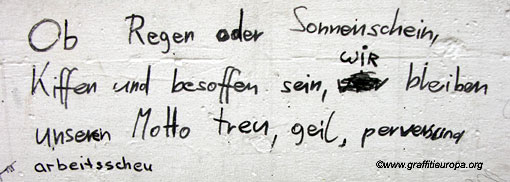 Ob Regen oder Sonnenschein,
Kiffen und besoffen sein, wir bleiben
unseren Motto treu, geil, pervers und
arbeitsscheu
©www.graffitieuropa.org